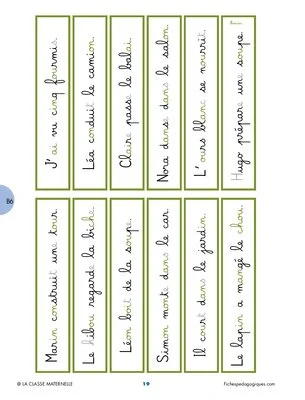 J'ai vu cinq fourmis.
Léa conduit le camion.
Claire passe le balai.
Nora danse dans le salon.
L'ours blanc se nourrit.
Hugo prépare une soupe.
Marin construit une tour.
Le hibou regarde la biche.
Léon boit de la soupe.
Simon monte dans le car.
Il court dans le jardin.
Le lapin a mangé le chou.
B6
@ LA CLASSE MATERNELLE
19
Fichespedagogiques.com